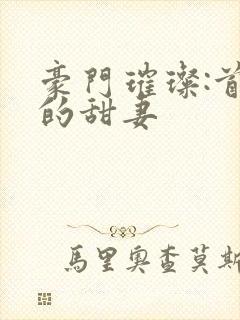 豪門璀璨:首
的甜妻
馬里奧查莫斯